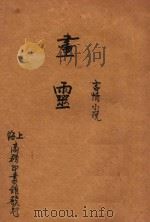 畫靈
言情小說
上海
商務印書館發行